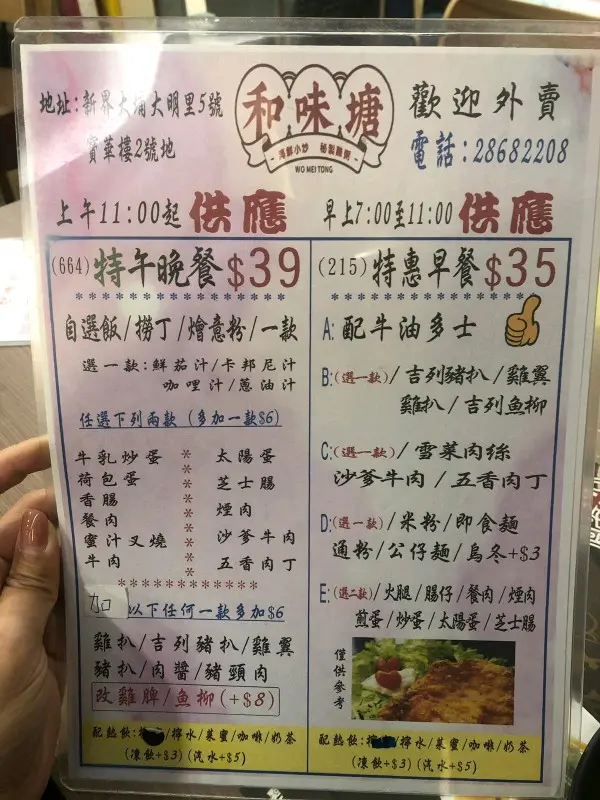 地址:新界大埔大明里5號
寶華樓2號地
和味塘
海鮮小炒 秘製雞煲
WO MEI TONG
歡迎外賣
電話:28682208
上午11:00起 供應
早上7:00至11:00 供應
(664)特午晚餐$39
*******************
自選飯/撈丁/燴意粉/一款
選一款:鮮茄汁/卡邦尼汁
咖哩汁/蔥油汁
任選下列兩款(多加一款$6)
牛乳炒蛋 * 太陽蛋
荷包蛋 * 芝士腸
香腸 * 煙肉
餐肉 * 沙爹牛肉
蜜汁叉燒 * 五香肉丁
牛肉
************
加 以下任何一款多加$6
雞扒/吉列豬扒/雞翼
豬扒/肉醬/豬頸肉
改雞脾/魚柳(+$8)
配熱飲:檸水/菜蜜/咖啡/奶茶
(凍飲+$3)(汽水+$5)
(215)特惠早餐$35
*******************
A:配牛油多士
B:(選一款)/吉列豬扒/雞翼
雞扒/吉列魚柳
C:(選一款)/雪菜肉絲
沙爹牛肉/五香肉丁
D:(選一款)/米粉/即食麵
通粉/公仔麵/烏冬+$3
E:(選二款)/火腿/腸仔/餐肉/煙肉
煎蛋/炒蛋/太陽蛋/芝士腸
僅供參考
配熱飲:檸水/菜蜜/咖啡/奶茶
(凍飲+$3)(汽水+$5)